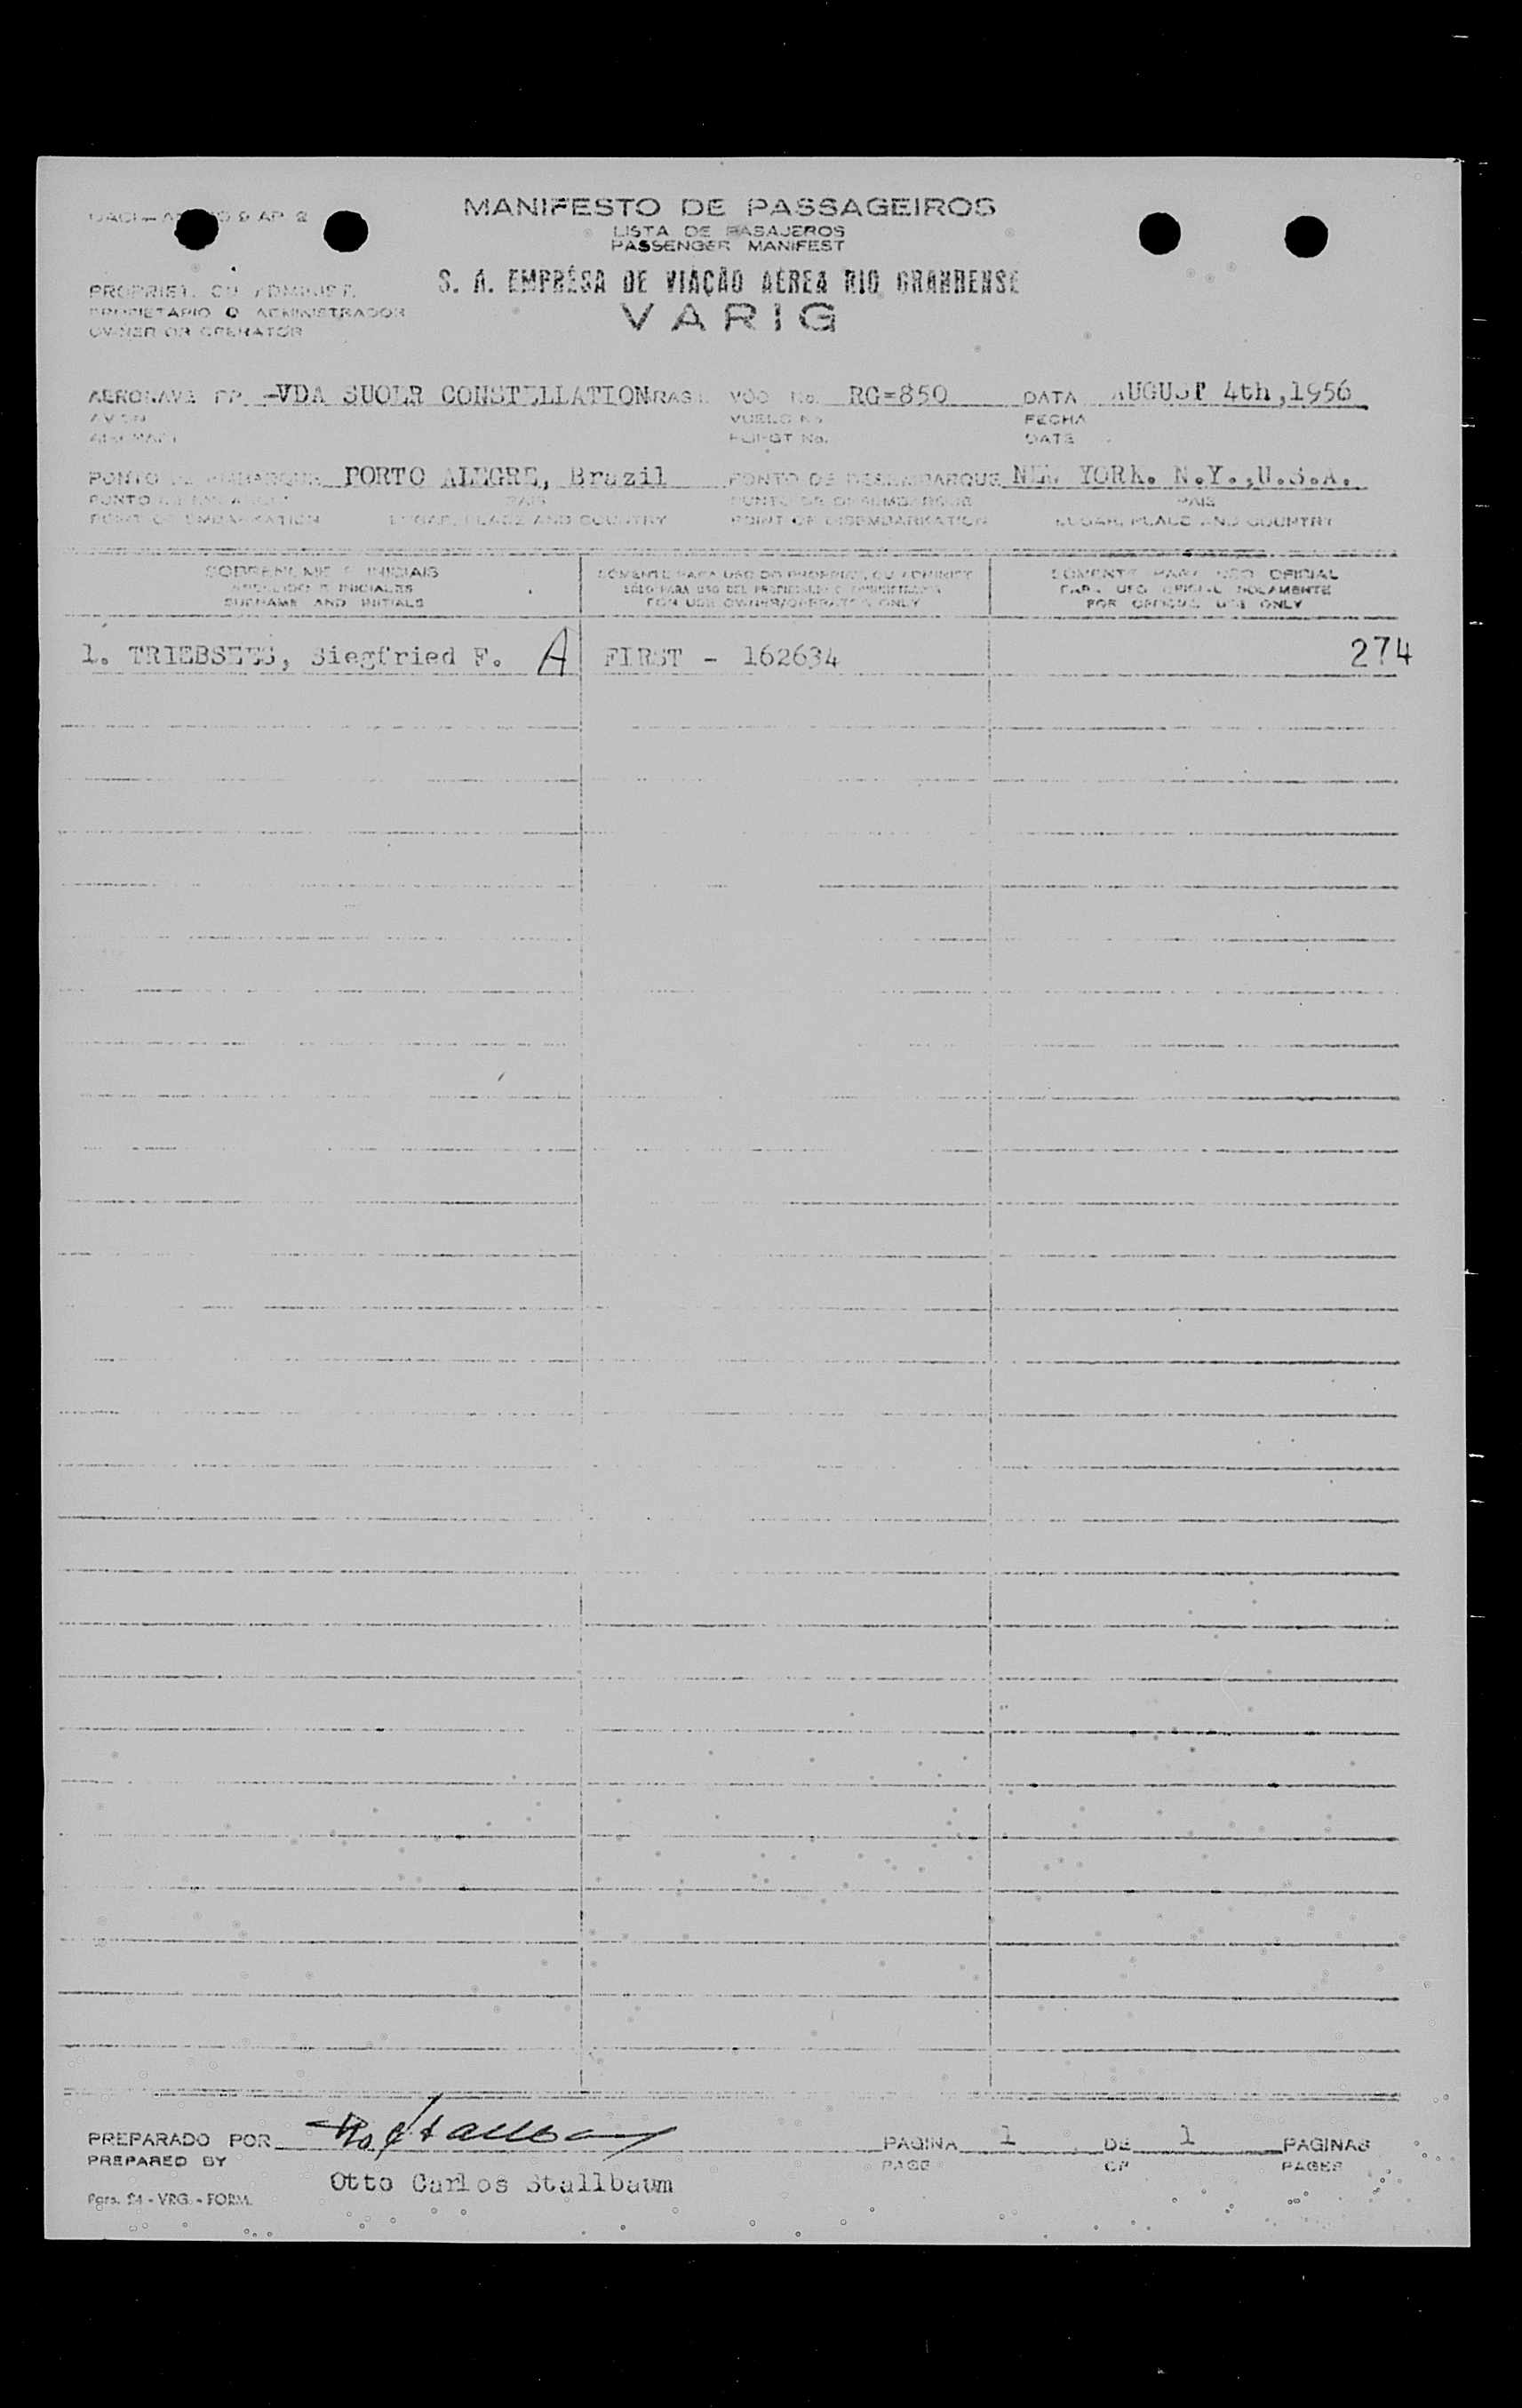 MANIFESTO DE PASSAGEIROS
LISTA DE PASAJEROS
PASSENGER MANIFEST
S. A. EMPRÊSA DE VIAÇÃO AÉREA RIO GRANDENSE
VARIG
PROPRIET. OU ADMINIST.
PROPIETARIO O ADMINISTRADOR
OWNER OR OPERATOR
AERONAVE PP -VDA SUOER CONSTELLATION VÔO No. RG=850 DATA AUGUST 4th,1956
AVION VUELO No. FECHA
AIRCRAFT FLIGHT No. DATE
PONTO DE EMBARQUE PORTO ALEGRE, Brazil PONTO DE DESEMBARQUE NEW YORK. N.Y.,U.S.A.
PUNTO DE EMBARQUE PAIS PUNTO DE DESEMBARQUE PAIS
POINT OF EMBARKATION LUGAR, PLACE AND COUNTRY POINT OF DISEMBARKATION LUGAR, PLACE AND COUNTRY
SOBRENOME E INICIAIS SÓMENTE PARA USO DO PROPRIET. OU ADMINIST. SÓMENTE PARA USO OFICIAL
APELLIDO E INICIALES SÓLO PARA USO DEL PROPIETARIO O ADMINISTRADOR PARA USO OFICIAL SOLAMENTE
SURNAME AND INITIALS FOR USE OWNER/OPERATOR ONLY FOR OFFICIAL USE ONLY
1. TRIEBSEES, Siegfried F. A FIRST - 162634 274
PREPARADO POR PAGINA 1 DE 1 PAGINAS
PREPARED BY PAGE OF PAGES
Otto Carlos Stallbaum
- VRG. - FORM.